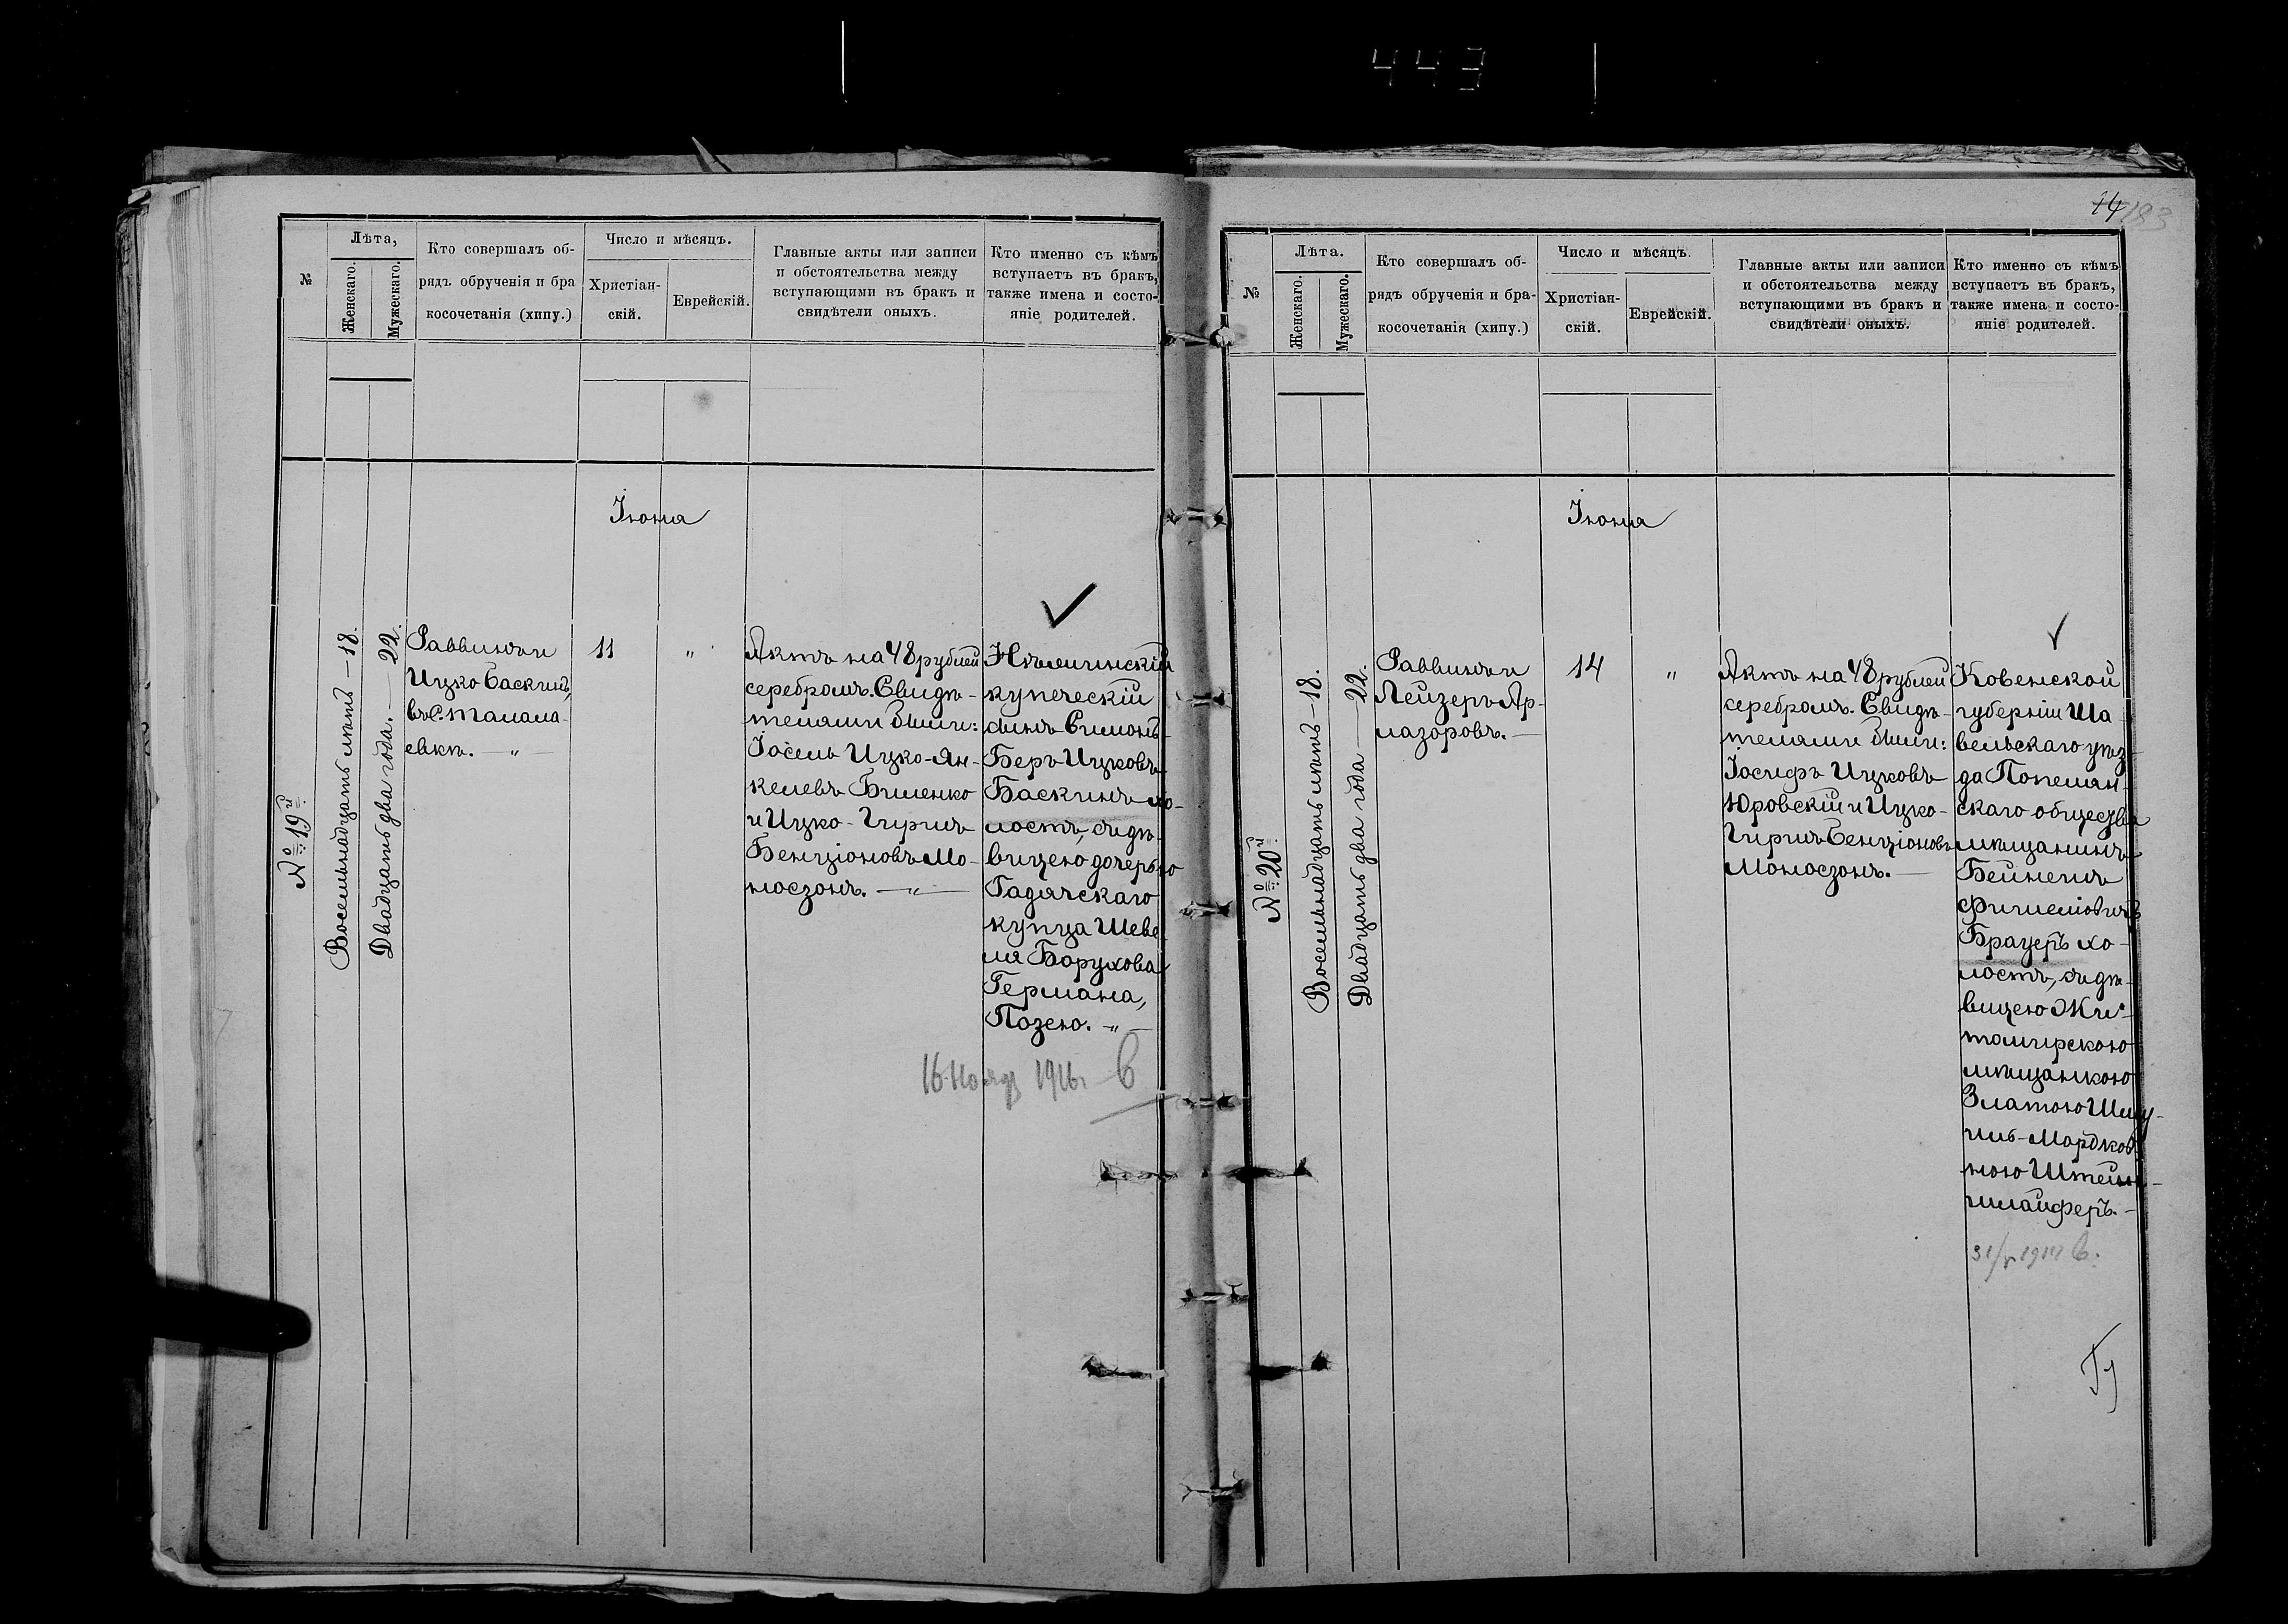 443
14
183
№
Лѣта,
Женскаго.
Мужескаго.
Кто совершалъ об-
рядъ обрученія и бра
косочетанія (хипу.)
Число и мѣсяцъ.
Христіан-
скій.
Еврейскій.
Главные акты или записи
и обстоятельства между
вступающими въ бракъ и
свидѣтели оныхъ.
Кто именно съ кѣмъ
вступаетъ въ бракъ,
также имена и состо-
яніе родителей.
Іюня
№ 19й
Восемьнадцать лѣтъ — 18.
Двадцать два года. — 22.
Раввинъ
Ицко Баскинъ,
въ с. Талала-
евкѣ. — „ —
11
„
Актъ на 48 рублей
серебромъ. Свидѣ-
телями были:
Іосель Ицко-Ян-
келевъ Биленко
и Ицко-Гиршъ
Бенціоновъ Мо-
носзонъ. — „ —
Нѣжинскій
купеческій
сынъ Симонъ-
Беръ Ицковъ
Баскинъ хо-
лостъ, съ дѣ-
вицею дочерью
Гадячскаго
купца Шеве
ля Борухова
Германа,
Позею. „ —
16 Нояб 1916 г. В
№
Лѣта.
Женскаго.
Мужескаго.
Кто совершалъ об-
рядъ обрученія и бра-
косочетанія (хипу.)
Число и мѣсяцъ.
Христіан-
скій.
Еврейскій.
Главные акты или записи
и обстоятельства между
вступающими въ бракъ и
свидѣтели оныхъ.
Кто именно съ кѣмъ
вступаетъ въ бракъ,
также имена и состо-
яніе родителей.
Іюня
№ 20й
Восемьнадцать лѣтъ — 18.
Двадцать два года — 22.
Раввинъ
Лейзеръ Ар-
лазоровъ. —
14
„
Актъ на 48 рублей
серебромъ. Свидѣ-
телями были:
Іосифъ Ицковъ
Юровскій и Ицко-
Гиршъ Бенціоновъ
Моносзонъ. —
Ковенской
губерніи Ша
вельскаго уѣз-
да Попелян-
скаго общества
мѣщанинъ
Бейнешъ
Фишелівичъ
Брауеръ хо-
лостъ, съ дѣ-
вицею Жи-
томирскою
мѣщанкою
Златою Шму-
иль-Мордков
ною Штейн-
шлайферъ. —